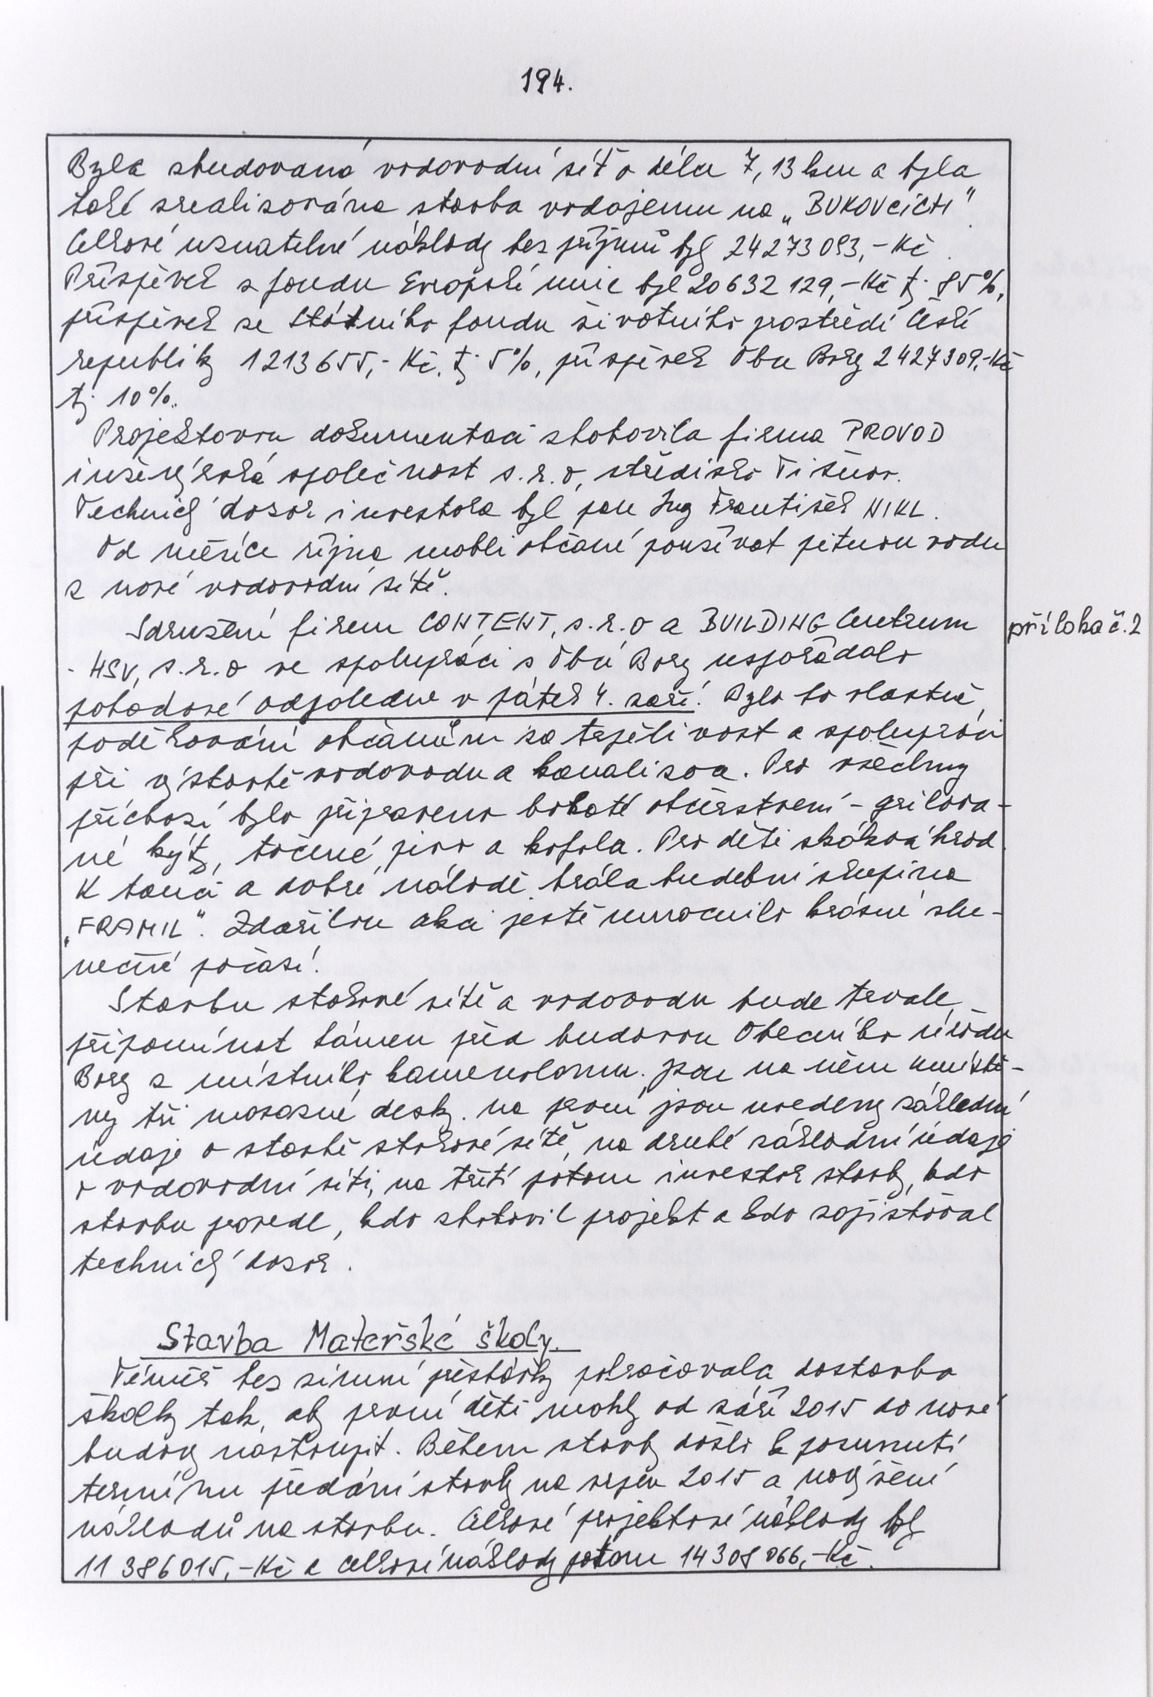 194.
Byla vbudovaná vodovodní síť o délce 7,13 km a byla
také zrealisována stavba vodojemu na „BUKOVCÍCH"
Celkové uznatelné náklady bez příjmů byly 24 273 093,- Kč.
Příspěvek z fondu Evropské unie byl 20 632 129,- Kč tj. 85%,
příspěvek ze Státního fondu životního prostředí České
republiky 1 213 655,- Kč, tj. 5%, příspěvek Obce Bory 2 427 309,- Kč
tj. 10%.
Projektovou dokumentaci zhotovila firma PROVOD
inženýrská společnost s.r.o, středisko Tišnov.
Technický dozor investora byl pan Ing František NIKL.
Od měsíce října mohli občané používat pitnou vodu
z nové vodovodní sítě.
Sdružení firem CONTENT, s.r.o a BUILDING Centrum
- HSV, s.r.o ve spolupráci s Obcí Bory uspořádalo
příloha č. 2
pohodové odpoledne v pátek 4. září. Bylo to vlastně
poděkování občanům za trpělivost a spolupráci
při výstavbě vodovodu a kanalizace. Pro všechny
příchozí bylo připraveno bohaté občerstvení - grilova-
né kýty, točené pivo a kofola. Pro děti skákací hrad.
K tanci a dobré náladě hrála hudební skupina
„FRAMIL". Zdařilou akci ještě umocnilo krásné slu-
nečné počasí.
Stavbu stokové sítě a vodovodu bude trvale
připomínat kámen před budovou Obecního úřadu
Bory z místního kamenolomu. Jsou na něm umístě-
ny tři mosazné desky. na první jsou uvedeny základní
údaje o stavbě stokové sítě, na druhé základní údaje
o vodovodní síti, na třetí potom investor stavby, kdo
stavbu provedl, kdo zhotovil projekt a kdo zajišťoval
technický dozor.
Stavba Mateřské školy.
Téměř bez zimní přestávky pokračovala dostavba
školky tak, aby první děti mohly od září 2015 do nové
budovy nastoupit. Během stavby došlo k posunutí
termínu předání stavby na srpen 2015 a navýšení
nákladů na stavbu. Celkové projektové náklady byly
11 386 015,- Kč a celkové náklady potom 14 308 066,- Kč.